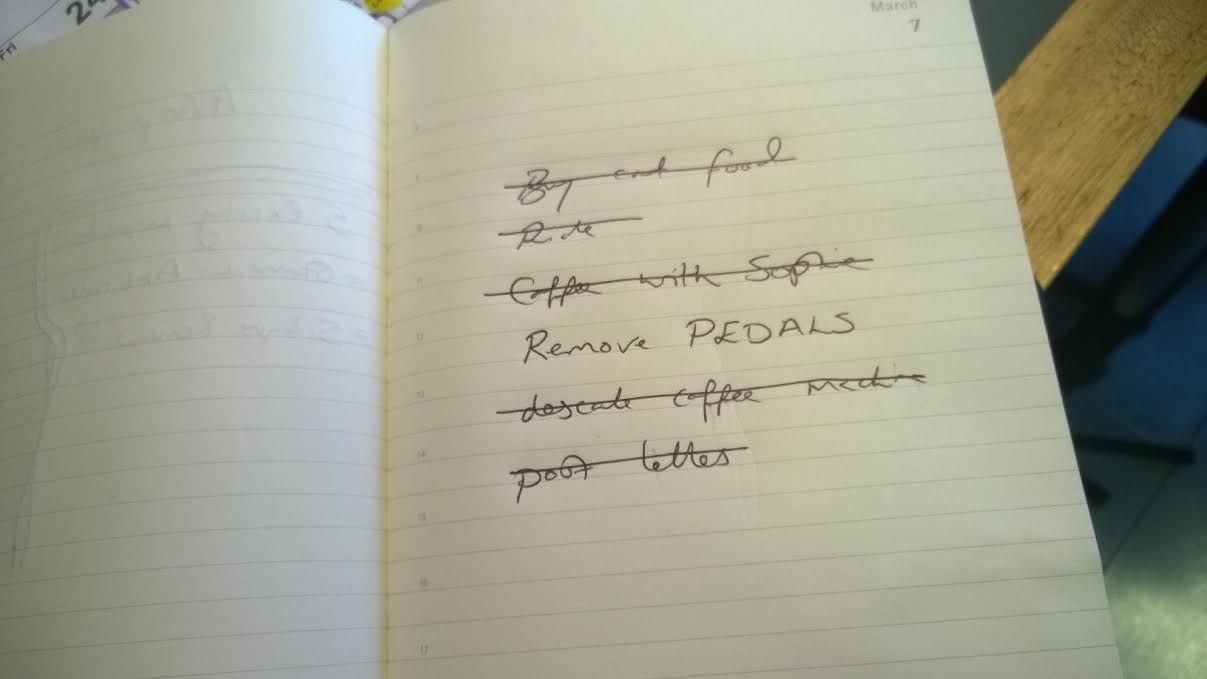 Fri
24
March
7
Buy cat food
Ride
Coffee with Sophie
Remove PEDALS
descale coffee machine
post letters
12
13
14
15
16
17